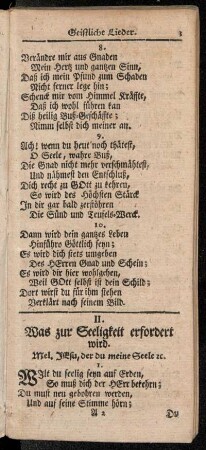 Geistliche Lieder. 3
8.
Verändre mir aus Gnaden
Mein Hertz und gantzen Sinn,
Daß ich mein Pfund zum Schaden
Nicht ferner lege hin;
Schenck mir vom Himmel Kräffte,
Daß ich wohl führen kan
Diß heilig Buß-Geschäffte;
Nimm selbst dich meiner an.
9.
Ach! wenn du heut noch thätest,
O Seele, wahre Buß,
Die Gnad nicht mehr verschmähtest,
Und nähmest den Entschluß,
Dich recht zu GOtt zu kehren,
So wird des Höchsten Stärck
In dir gar bald zerstöhren
Die Sünd und Teufels-Werck.
10.
Dann wird dein gantzes Leben
Hinführo Göttlich seyn;
Es wird dich stets umgeben
Des HErren Gnad und Schein;
Es wird dir hier wohlgehen,
Weil GOtt selbst ist dein Schild;
Dort wirst du für ihm stehen
Verklärt nach seinem Bild.
II.
Was zur Seeligkeit erfordert
wird.
Mel. JEsu, der du meine Seele ꝛc.
1.
Wilt du seelig seyn auf Erden,
So muß dich der HErr bekehrn;
Du must neu gebohren werden,
Und auf seine Stimme hörn;
A 2 Du